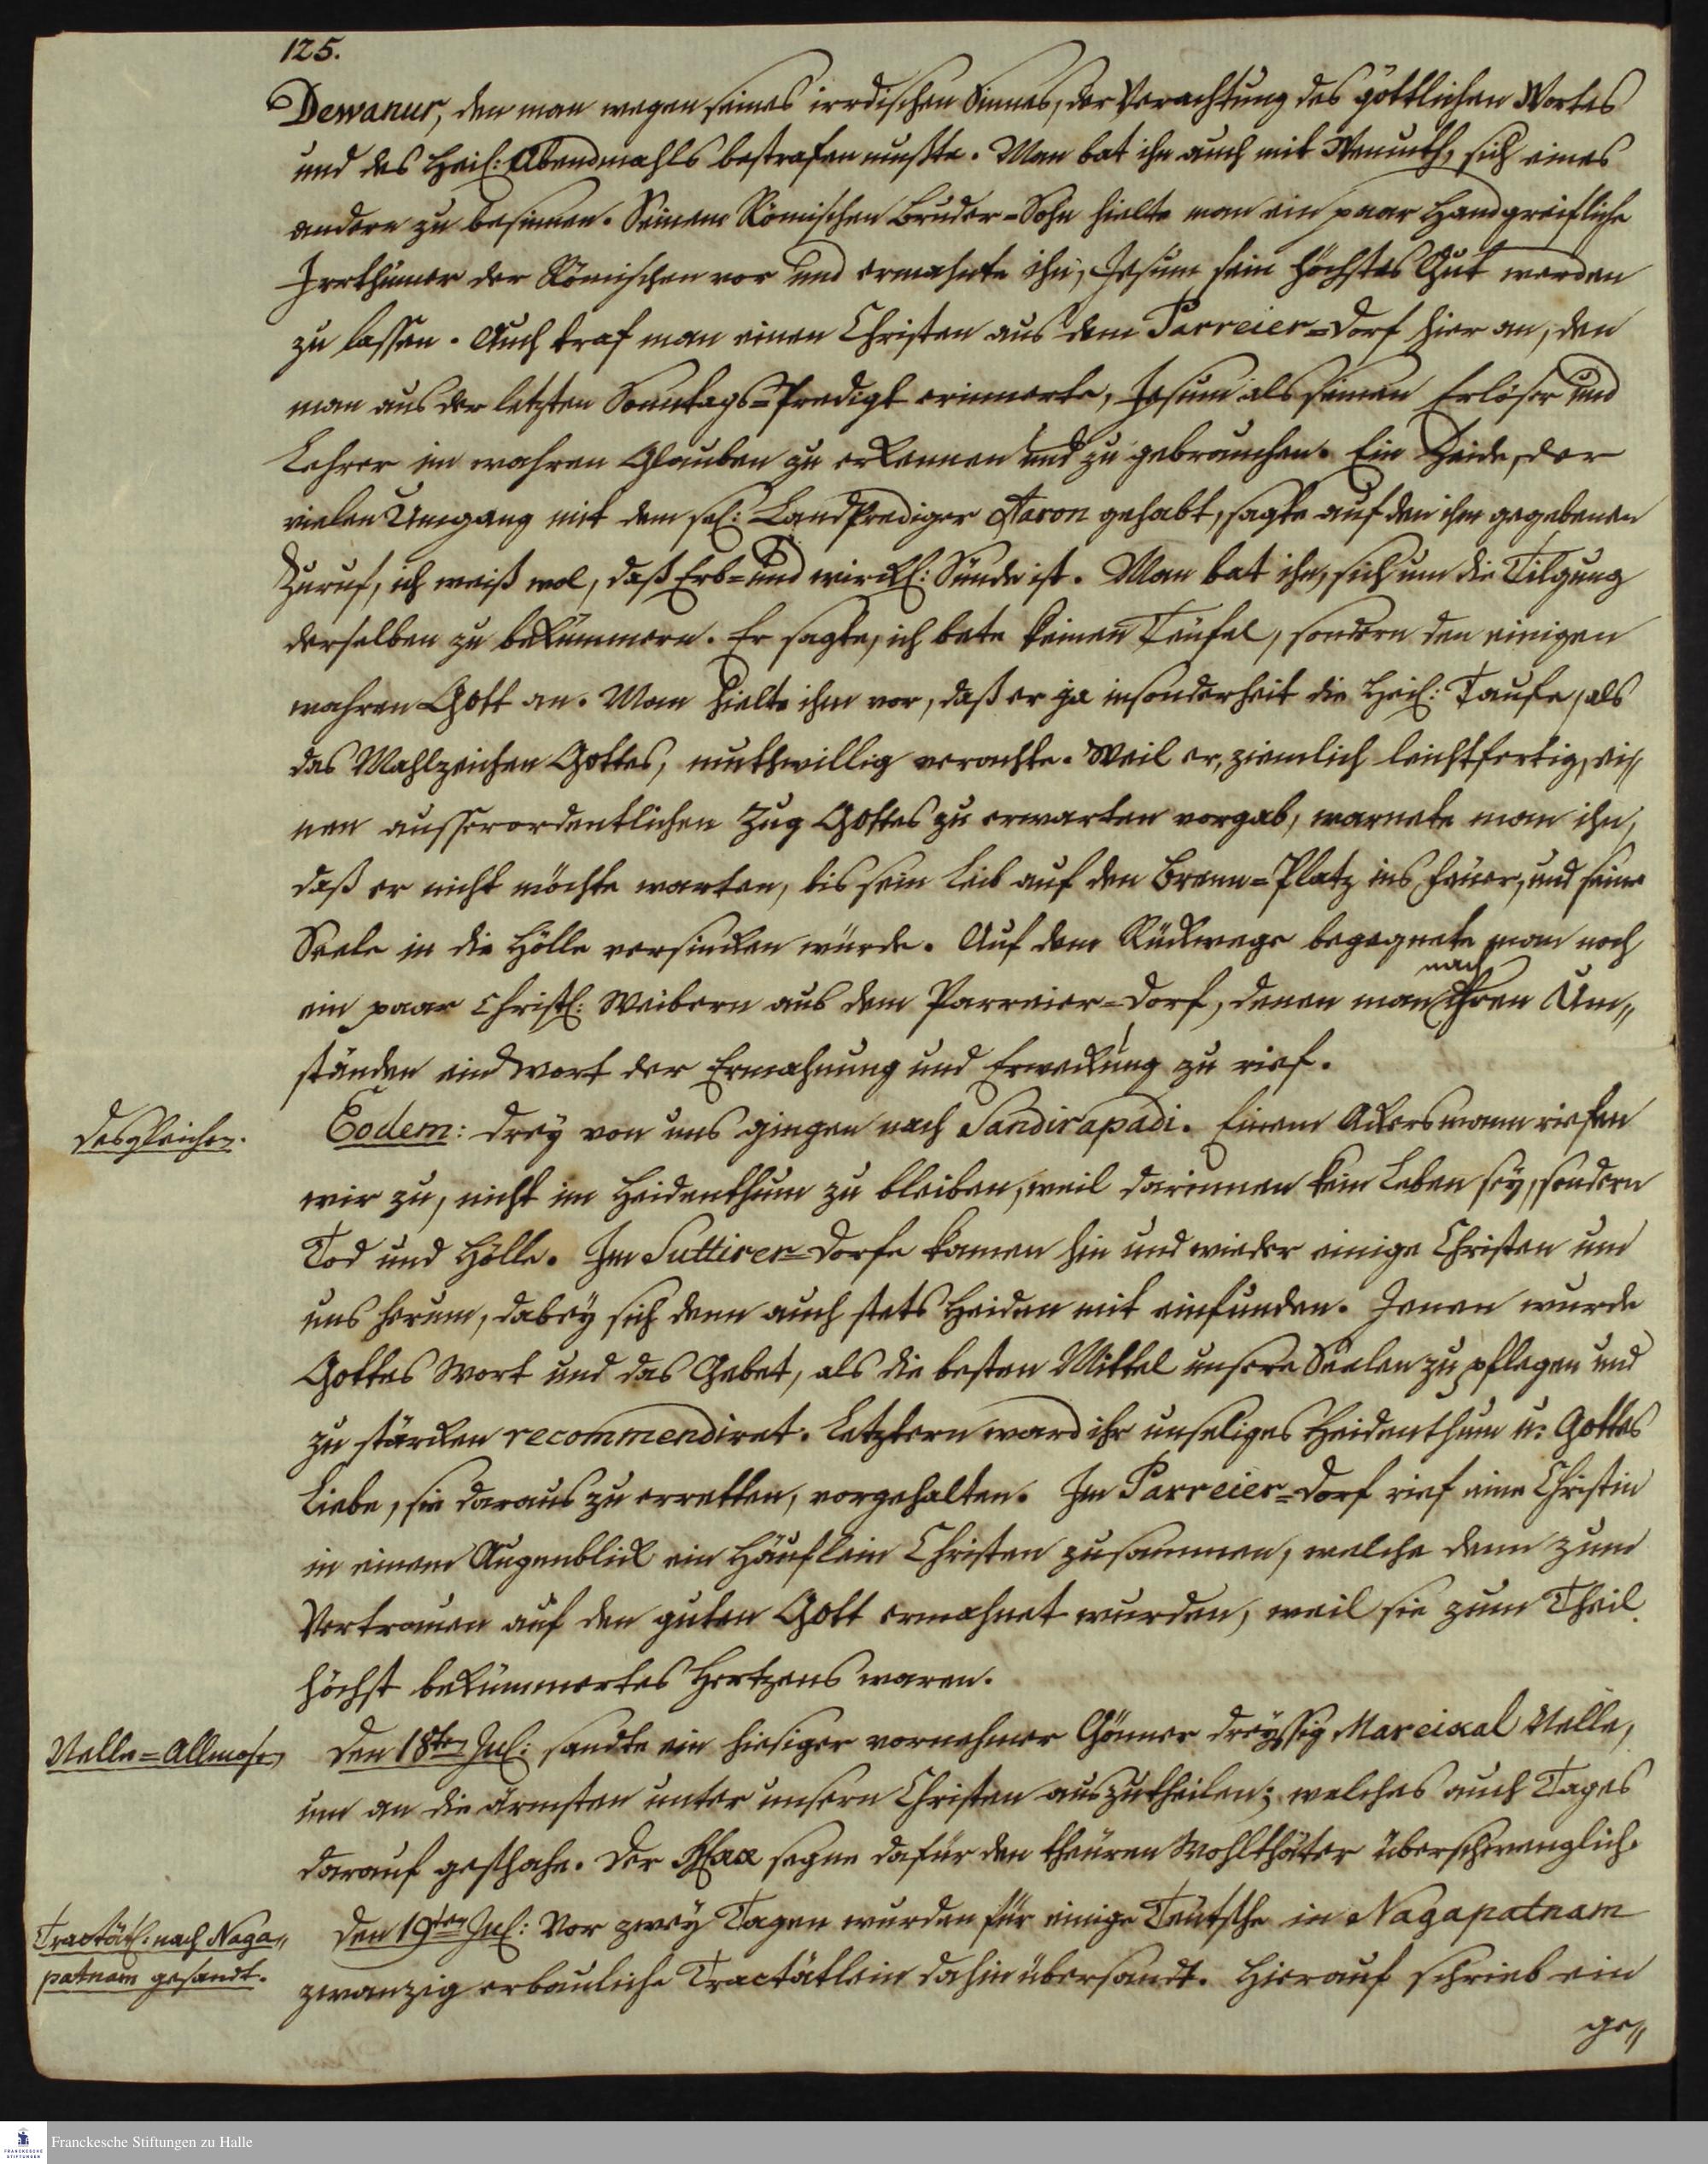 125.
Dewanur, den man wegen seines irrdischen Sinnes, der Verachtung des göttlichen Wortes
und des Heil: Abendmahls bestrafen mußte. Man bat ihn auch mit Wemuth, sich eines
andern zu besinnen. Seinem Römischen Bruder-Sohn hielte man ein paar handgreifliche
Irrthümer der Römischen vor und ermahnte ihn, Jesum sein höchstes Gut werden
zu lassen. Auch traf man einen Christen aus dem Parreier-Dorf hier an, den
man aus der letzten Sonntags-Predigt erinnerte, Jesum als seinen Erlöser und
Lehrer im wahren Glauben zu erkennen und zu gebrauchen. Ein Heide, der
vielen Umgang mit dem sel: Landprediger Aaron gehabt, sagte auf den ihm gegebenen
Zuruf, ich weiß wol, daß Erb- und wirckl: Sünde ist. Man bat ihn, sich um die Tilgung
derselben zu bekümmern. Er sagte, ich bete keinen Teufel, sondern den einigen
wahren Gott an. Man hielte ihm vor, daß er ja insonderheit die Heil: Taufe, als
das Mahlzeichen Gottes, muthwillig verachte. Weil er, ziemlich leichtfertig, ei=
nen ausserordentlichen Zug Gottes zu erwarten vorgab, warnete man ihn,
daß er nicht möchte warten, bis sein Leib auf den Brenn-Platz ins Feuer, und seine
Seele in die Hölle versincken würde. Auf dem Rückwege begegnete man noch
ein paar Christl: Weibern aus dem Parreier-Dorf, denen man nach ihren Um=
ständen ein Wort der Ermahnung und Erweckung zu rief.
Desgleichen.
Eodem: Drey von uns gingen nach Sandirapadi. Einem Ackersmann riefen
wir zu, nicht im Heidenthum zu bleiben, weil darinnen kein Leben sey, sondern
Tod und Hölle. Im Suttirer-Dorfe kamen hin und wieder einige Christen um
uns herum, dabey sich denn auch stets Heiden mit einfunden. Jenen wurde
Gottes Wort und das Gebet, als die besten Mittel unsere Seelen zu pflegen und
zu stärcken recommendiret. Letztern ward ihr unseliges Heidenthum u: Gottes
Liebe, sie daraus zu erretten, vorgehalten. Im Parreier-Dorf rief eine Christin
in einem Augenblick ein Häuflein Christen zusammen, welche denn zum
Vertrauen auf den guten Gott ermahnet wurden, weil sie zum Theil
höchst bekümmertes Hertzens waren.
Nelle-Allmosen
Den 18ten Jul: sandte ein hiesiger vornehmer Gönner dreyssig Mareikal Nelle,
um an die ärmsten unter unsern Christen auszutheilen; welches auch Tages
darauf geschahe. Der HErr segne dafür den theuren Wohlthäter überschwenglich.
Tractätl: nach Naga=
patnam gesandt.
Den 19ten Jul: Vor zwey Tagen wurden für einige Teutsche in Nagapatnam
zwanzig erbauliche Tractätlein dahin übersandt. Hierauf schrieb ein
ge=
Franckesche Stiftungen zu Halle